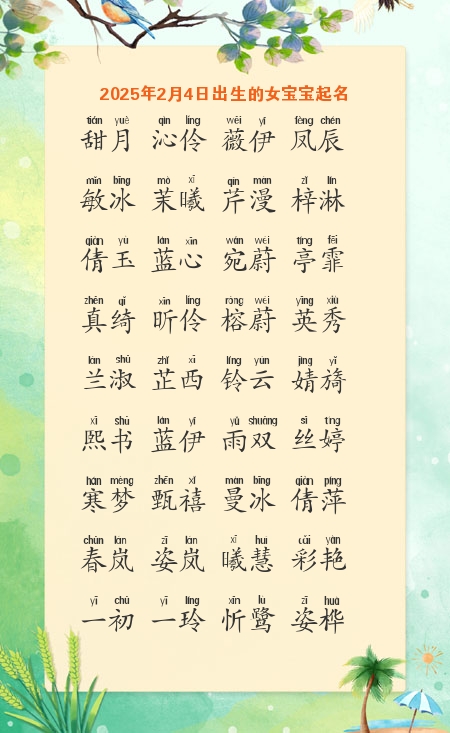 2025年2月4日出生的女宝宝起名
tián yuè qìn líng wēi yī fèng chén
甜月 沁伶 薇伊 凤辰
mǐn bīng mò xī qín màn zǐ lín
敏冰 茉曦 芹漫 梓淋
qiàn yù lán xīn wǎn wèi tíng fēi
倩玉 蓝心 宛蔚 亭霏
zhēn qǐ xīn líng róng wèi yīng xiù
真绮 昕伶 榕蔚 英秀
lán shū zhǐ xī líng yún jìng yǐ
兰淑 芷西 铃云 婧旖
xī shū lán yī yǔ shuāng sī tíng
熙书 蓝伊 雨双 丝婷
hán mèng zhēn xǐ màn bīng qiàn píng
寒梦 甄禧 曼冰 倩萍
chūn lán zī lán xī huì cǎi yàn
春岚 姿岚 曦慧 彩艳
yī chū yī líng xīn lù zī huà
一初 一玲 忻鹭 姿桦